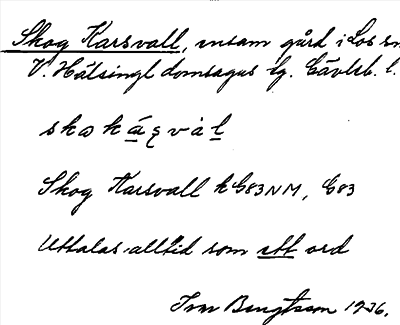 Skog Karsvall, ensam gård i Los sn
V. Hälsingl domsagas tg. Gävleb. l.
Skog Karsvall k G83NM, G83
Uttalas alltid som ett ord
Ivar Bengtsson 1936.